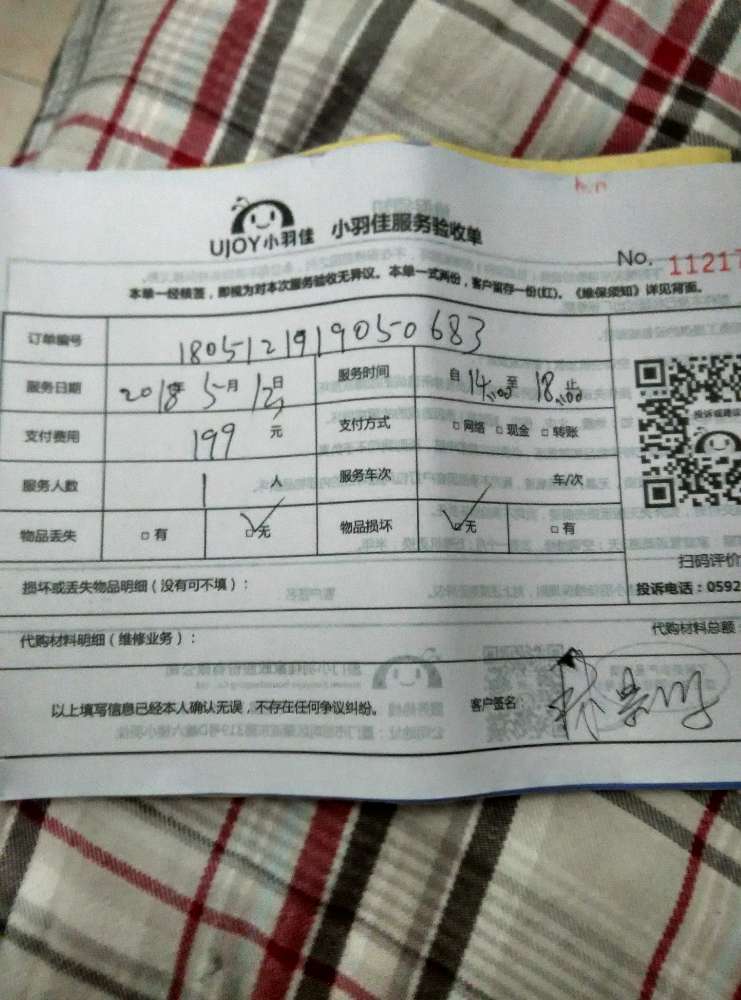 UJOY小羽佳 小羽佳服务验收单
No. 11217
本单一经核签，即视为对本次服务验收无异议。本单一式两份，客户留存一份(红)。《维保须知》详见背面。
订单编号 180512191905０683
服务日期 2018年 5月 12日 服务时间 自 14:00 至 18:00 止
投诉或建议
支付费用 199 元 支付方式 □网络 □现金 □转账
服务人数 1 人 服务车次 车/次
物品丢失 □有 □无 物品损坏 □无 □有
扫码评价
损坏或丢失物品明细（没有可不填）： 投诉电话：0592
代购材料明细（维修业务）： 代购材料总额：
以上填写信息已经本人确认无误，不存在任何争议纠纷。 客户签名：